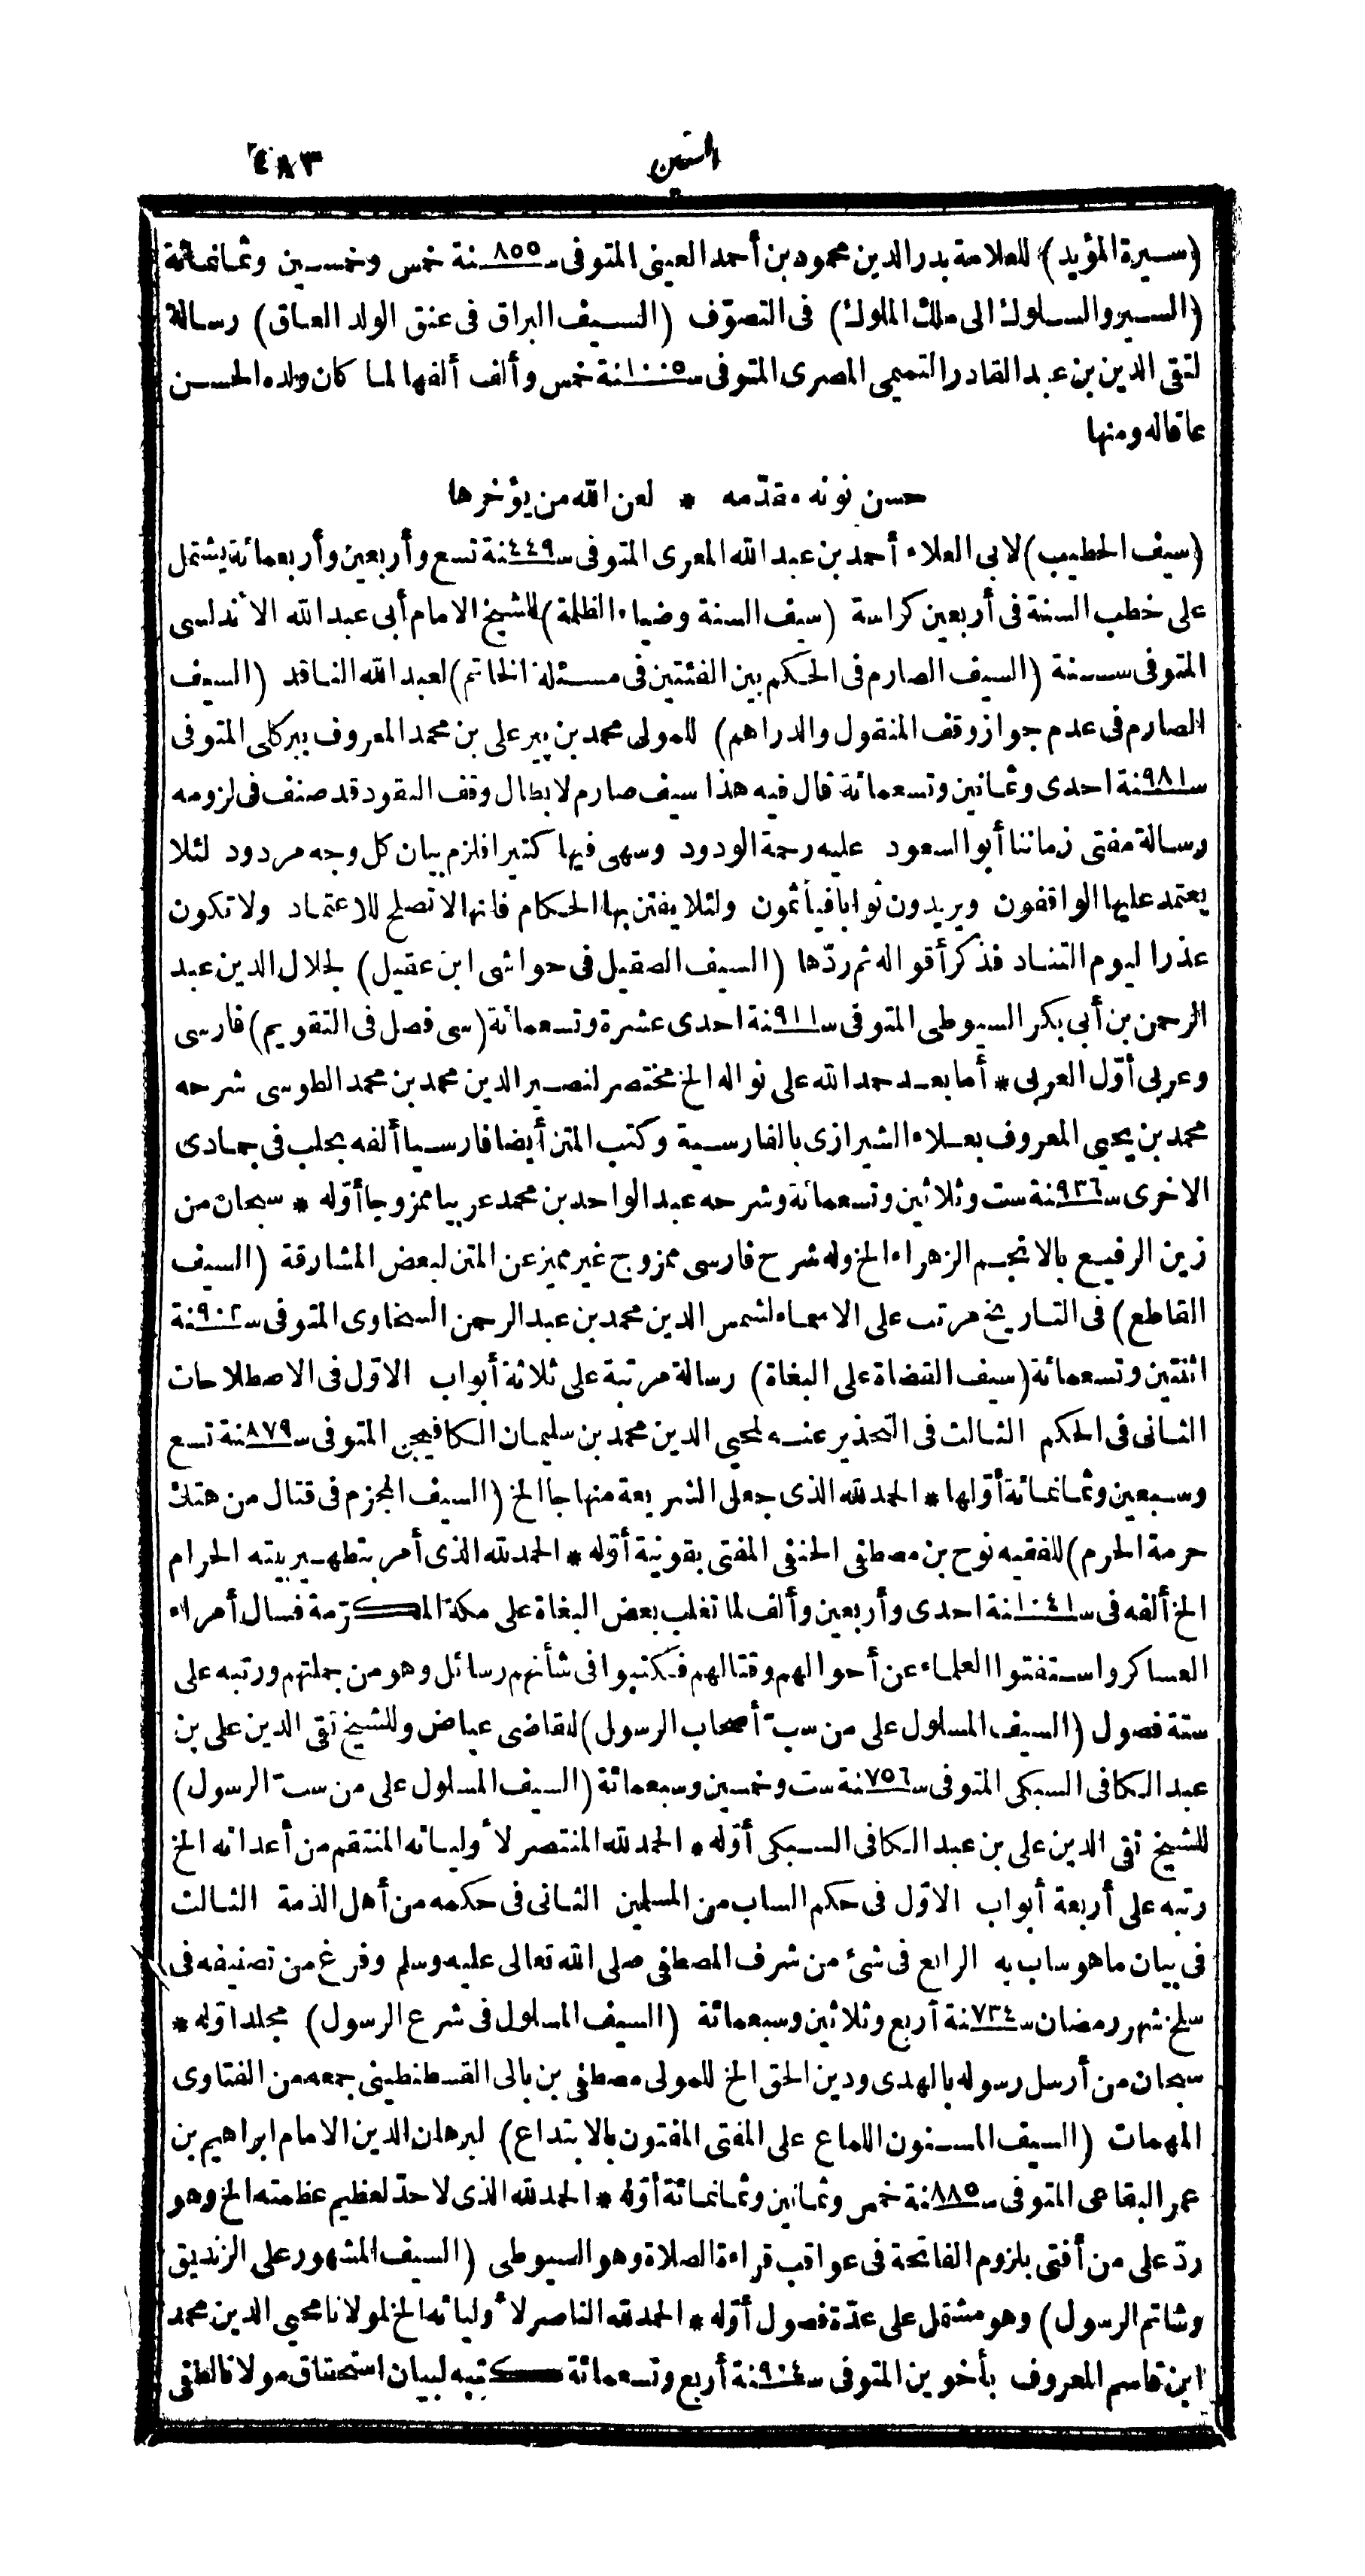 السين ٤٨٣
(سيرة المؤيد) للعلامة بدر الدين محمود بن أحمد العينى المتوفى سنة ٨٥٥ خمس وخمسين وثمانمائة
(السير والسلوك الى ملك الملوك) فى التصوّف (السيف البراق فى عنق الولد العاق) رسالة
لتقى الدين بن عبد القادر التميمى المصرى المتوفى سنة ١٠٠٥ خمس وألف ألفها لما كان ولده الحسن
عاقاله ومنها
حسن نونه مقدّمه * لعن الله من يؤخرها
(سيف الخطيب) لابى العلاء أحمد بن عبد الله المعرى المتوفى سنة ٤٤٩ تسع وأربعين وأربعمائة يشتمل
على خطب السنة فى أربعين كراسة (سيف السنة وضياء الظلمة) للشيخ الامام أبى عبد الله الأندلسى
المتوفى سنة (السيف الصارم فى الحكم بين الفئتين فى مسئلة الخاتم) لعبد الله الناقد (السيف
الصارم فى عدم جواز وقف المنقول والدراهم) للمولى محمد بن پير على بن محمد المعروف ببركلى المتوفى
سنة ٩٨١ احدى وثمانين وتسعمائة قال فيه هذا سيف صارم لابطال وقف النقود قد صنف فى لزومه
رسالة مفتى زماننا أبو السعود عليه رحمة الودود وسهى فيها كثيرا فلزم بيان كل وجه مردود لئلا
يعتمد عليها الواقفون ويريدون ثوابا فيأثمون ولئلا يفتن بها الحكام فانها لا تصلح للاعتماد ولا تكون
عذرا ليوم التناد فذكر أقواله ثم ردّها (السيف الصقيل فى حواشى ابن عقيل) لجلال الدين عبد
الرحمن بن أبى بكر السيوطى المتوفى سنة ٩١١ احدى عشرة وتسعمائة (سى فصل فى التقويم) فارسى
وعربى أوّل العربى * أما بعد حمد الله على نواله الخ مختصر لنصير الدين محمد بن محمد الطوسى شرحه
محمد بن يحيى المعروف بعلاء الشيرازى بالفارسية وكتب المتن أيضا فارسيا ألفه بحلب فى جمادى
الاخرى سنة ٩٣٦ ست وثلاثين وتسعمائة وشرحه عبد الواحد بن محمد عربيا ممزوجا أوّله * سبحان من
زين الرفيع بالانجم الزهراء الخ وله شرح فارسى ممزوج غير مميز عن المتن لبعض المشارقة (السيف
القاطع) فى التاريخ مرتب على الاسماء لشمس الدين محمد بن عبد الرحمن السخاوى المتوفى سنة ٩٠٢
اثنتين وتسعمائة (سيف القضاة على البغاة) رسالة مرتبة على ثلاثة أبواب الاوّل فى الاصطلاحات
الثانى فى الحكم الثالث فى التحذير عنه لمحيي الدين محمد بن سليمان الكافيجى المتوفى سنة ٨٧٩ تسع
وسبعين وثمانمائة أوّلها * الحمد لله الذى جعل الشريعة منهاجا الخ (السيف المجزم فى قتال من هتك
حرمة الحرم) للفقيه نوح بن مصطفى الحنفى المفتى بقونية أوّله * الحمد لله الذى أمر بتطهير بيته الحرام
الخ ألفه فى سنة ١٠٤١ احدى وأربعين وألف لما تغلب بعض البغاة على مكة المكرّمة فسال أمراء
العساكر واستفتوا العلماء عن أحوالهم وقتالهم فكتبوا فى شأنهم رسائل وهو من جملتهم ورتبه على
ستة فصول (السيف المسلول على من سبّ أصحاب الرسول) للقاضى عياض وللشيخ تقى الدين على بن
عبد الكافى السبكى المتوفى سنة ٧٥٦ ست وخمسين وسبعمائة (السيف المسلول على من سبّ الرسول)
للشيخ تقى الدين على بن عبد الكافى السبكى أوّله * الحمد لله المنتصر لأوليائه المنتقم من أعدائه الخ
رتبه على أربعة أبواب الاوّل فى حكم الساب من المسلمين الثانى فى حكمه من أهل الذمة الثالث
فى بيان ما هو ساب به الرابع فى شئ من شرف المصطفى صلى الله تعالى عليه وسلم وفرغ من تصنيفه فى
سلخ شهر رمضان سنة ٧٣٤ أربع وثلاثين وسبعمائة (السيف المسلول فى شرع الرسول) مجلد أوّله *
سبحان من أرسل رسوله بالهدى ودين الحق الخ للمولى مصطفى بن بالى القسطنطينى جمعه من الفتاوى
المهمات (السيف المسنون اللماع على المفتى المفتون بالابتداع) لبرهان الدين الامام ابراهيم بن
عمر البقاعى المتوفى سنة ٨٨٥ خمس وثمانين وثمانمائة أوّله * الحمد لله الذى لا حدّ لعظيم عظمته الخ وهو
ردّ على من أفتى بلزوم الفاتحة فى عواقب قراءة الصلاة وهو السيوطى (السيف المشهور على الزنديق
وشاتم الرسول) وهو مشتمل على عدّة فصول أوّله * الحمد لله الناصر لأوليائه الخ لمولانا محيي الدين محمد
ابن قاسم المعروف بأخوين المتوفى سنة ٩٠٤ أربع وتسعمائة كتبه لبيان استحقاق مولانا لطفى